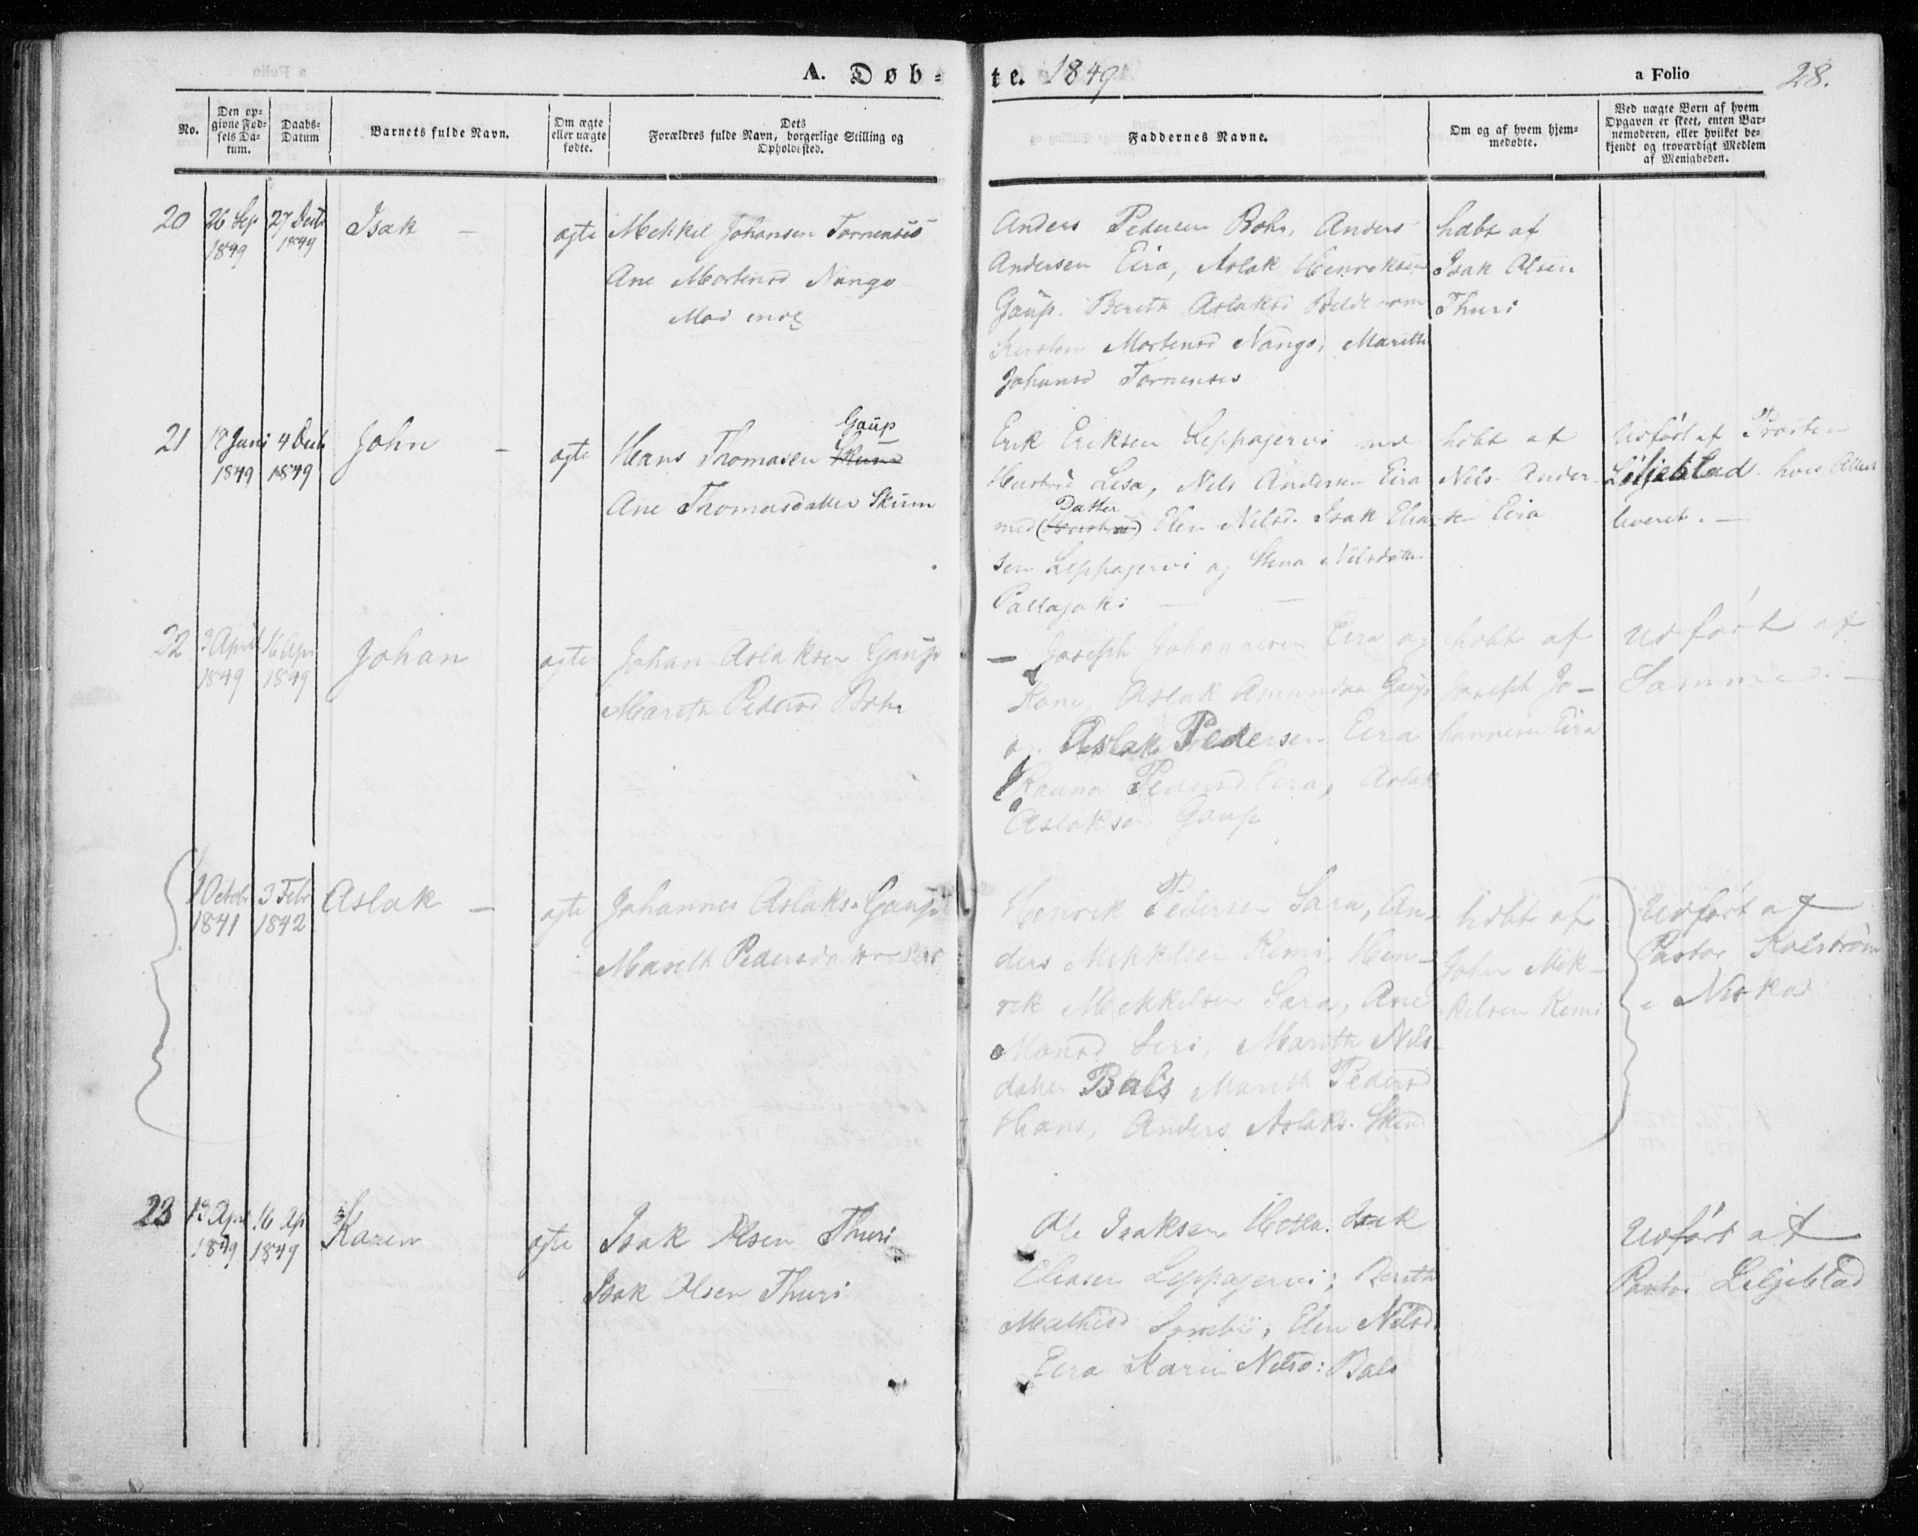 A. Døb-
te. 1849
a Folio 28.
No.
Den op-
givne Fød-
sels Da-
tum.
Daabs-
Datum
Barnets fulde Navn.
Om ægte
eller uægte
fødte.
Dets
Forældres fulde Navn, borgerlige Stilling og
Opholdssted.
Faddernes Navne.
Om og af hvem hjem-
medøbte.
Ved uægte Børn af hvem
Opgaven er skeet, enten Bar-
nemoderen, eller hvilket be-
kjendt og troværdigt Medlem
af Menigheden.
20
26 Sep
1849
27 Decb
1849
Isak -
ægte
Mekkel Johansen Tornensis
Ane Mortensd Nango
Anders Pedersen Bohr, Anders
Andersen Eira, Aslak Henriksen
Gaup. Bereth Aslaksd
Mortensd Nango, Mareth
Johansd Tornensis
hdbt af
Isak Olsen
Thuri
21
18 Juni
1849
4 Decb
1849
John -
ægte
Gaup
Hans Thomasen Skum
Ane Thomasdatter Skum
Erik Eriksen Leppajervi med
Hustrue Lisa, Nils Andersen Eira
Datter
med (Hustrue) Elen Nilsd. Isak Elia
sen Leppajervi og Stina Nilsdatter
Pallajoki -
hdbt af
Nils Ander-
sen Eira
Udført af Provsten
Liljeblad. hvis Attest
leveret. -
22
3 April
1849
16 Apr
1849
Johan
ægte
Johan Aslaksen Gaup
Mareth Pedersd Bohr
- Joseph Johannesen Eira og
Kone, Aslak Amundsen Gaup
og Aslak Pedersen Eira
Rauna Pedersd Eira, Aslak
Aslaksen Gaup
hdbt af
Joseph Jo-
hannesen Eira
Udført af
Samme. -
1 Octobr
1841
3 Febr
1842
Aslak -
ægte
Johannes Aslaks. Gaup
Mareth Pedersdatter
Henrik Pedersen Sara, An-
ders Mekkelsen Kemi, Hen-
rik Mekkelsen Sara, Ane
Monsd Siri, Mareth Nils-
datter Bals Mareth Pedersd
Hans, Anders Aslaks.
hdbt af
John Mik-
kelsen Kemi
Udført af
Pastor Kolstrøm
23
12 Apr
1849
16 Ap
1849
Karen
ægte
Isak Olsen Thuri
Isak Olsen Thuri
Ole Isaksen Hetta. Isak
Eliasen Leppajervi; Bereth
Mathisd Sombi; Elen Nilsd.
Eira Karin Nilsd: Bals
Udført af
Pastor Liljeblad